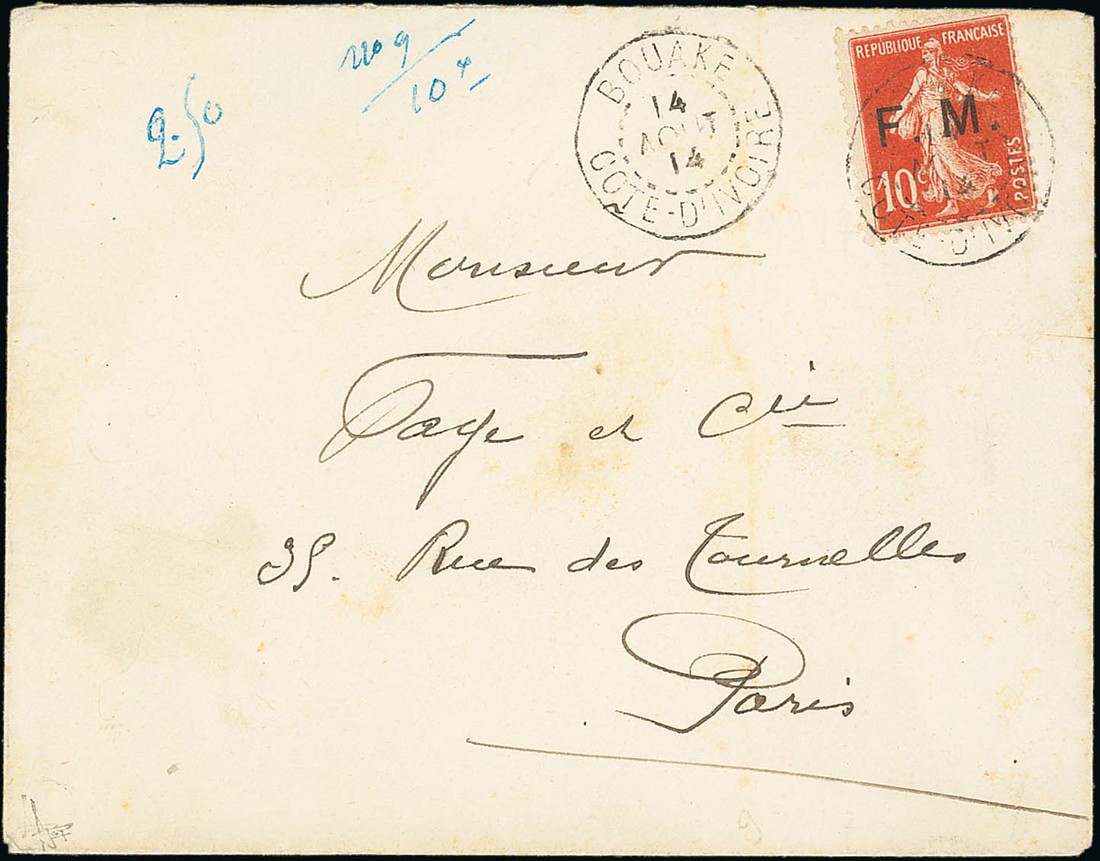 no 9
10 x
2.50
BOUAKE
14
AOUT
14
COTE-D'IVOIRE
REPUBLIQUE FRANÇAISE
F. M.
10c
POSTES
14
Monsieur
Faye et Cie
35. Rue des Tournelles
Paris